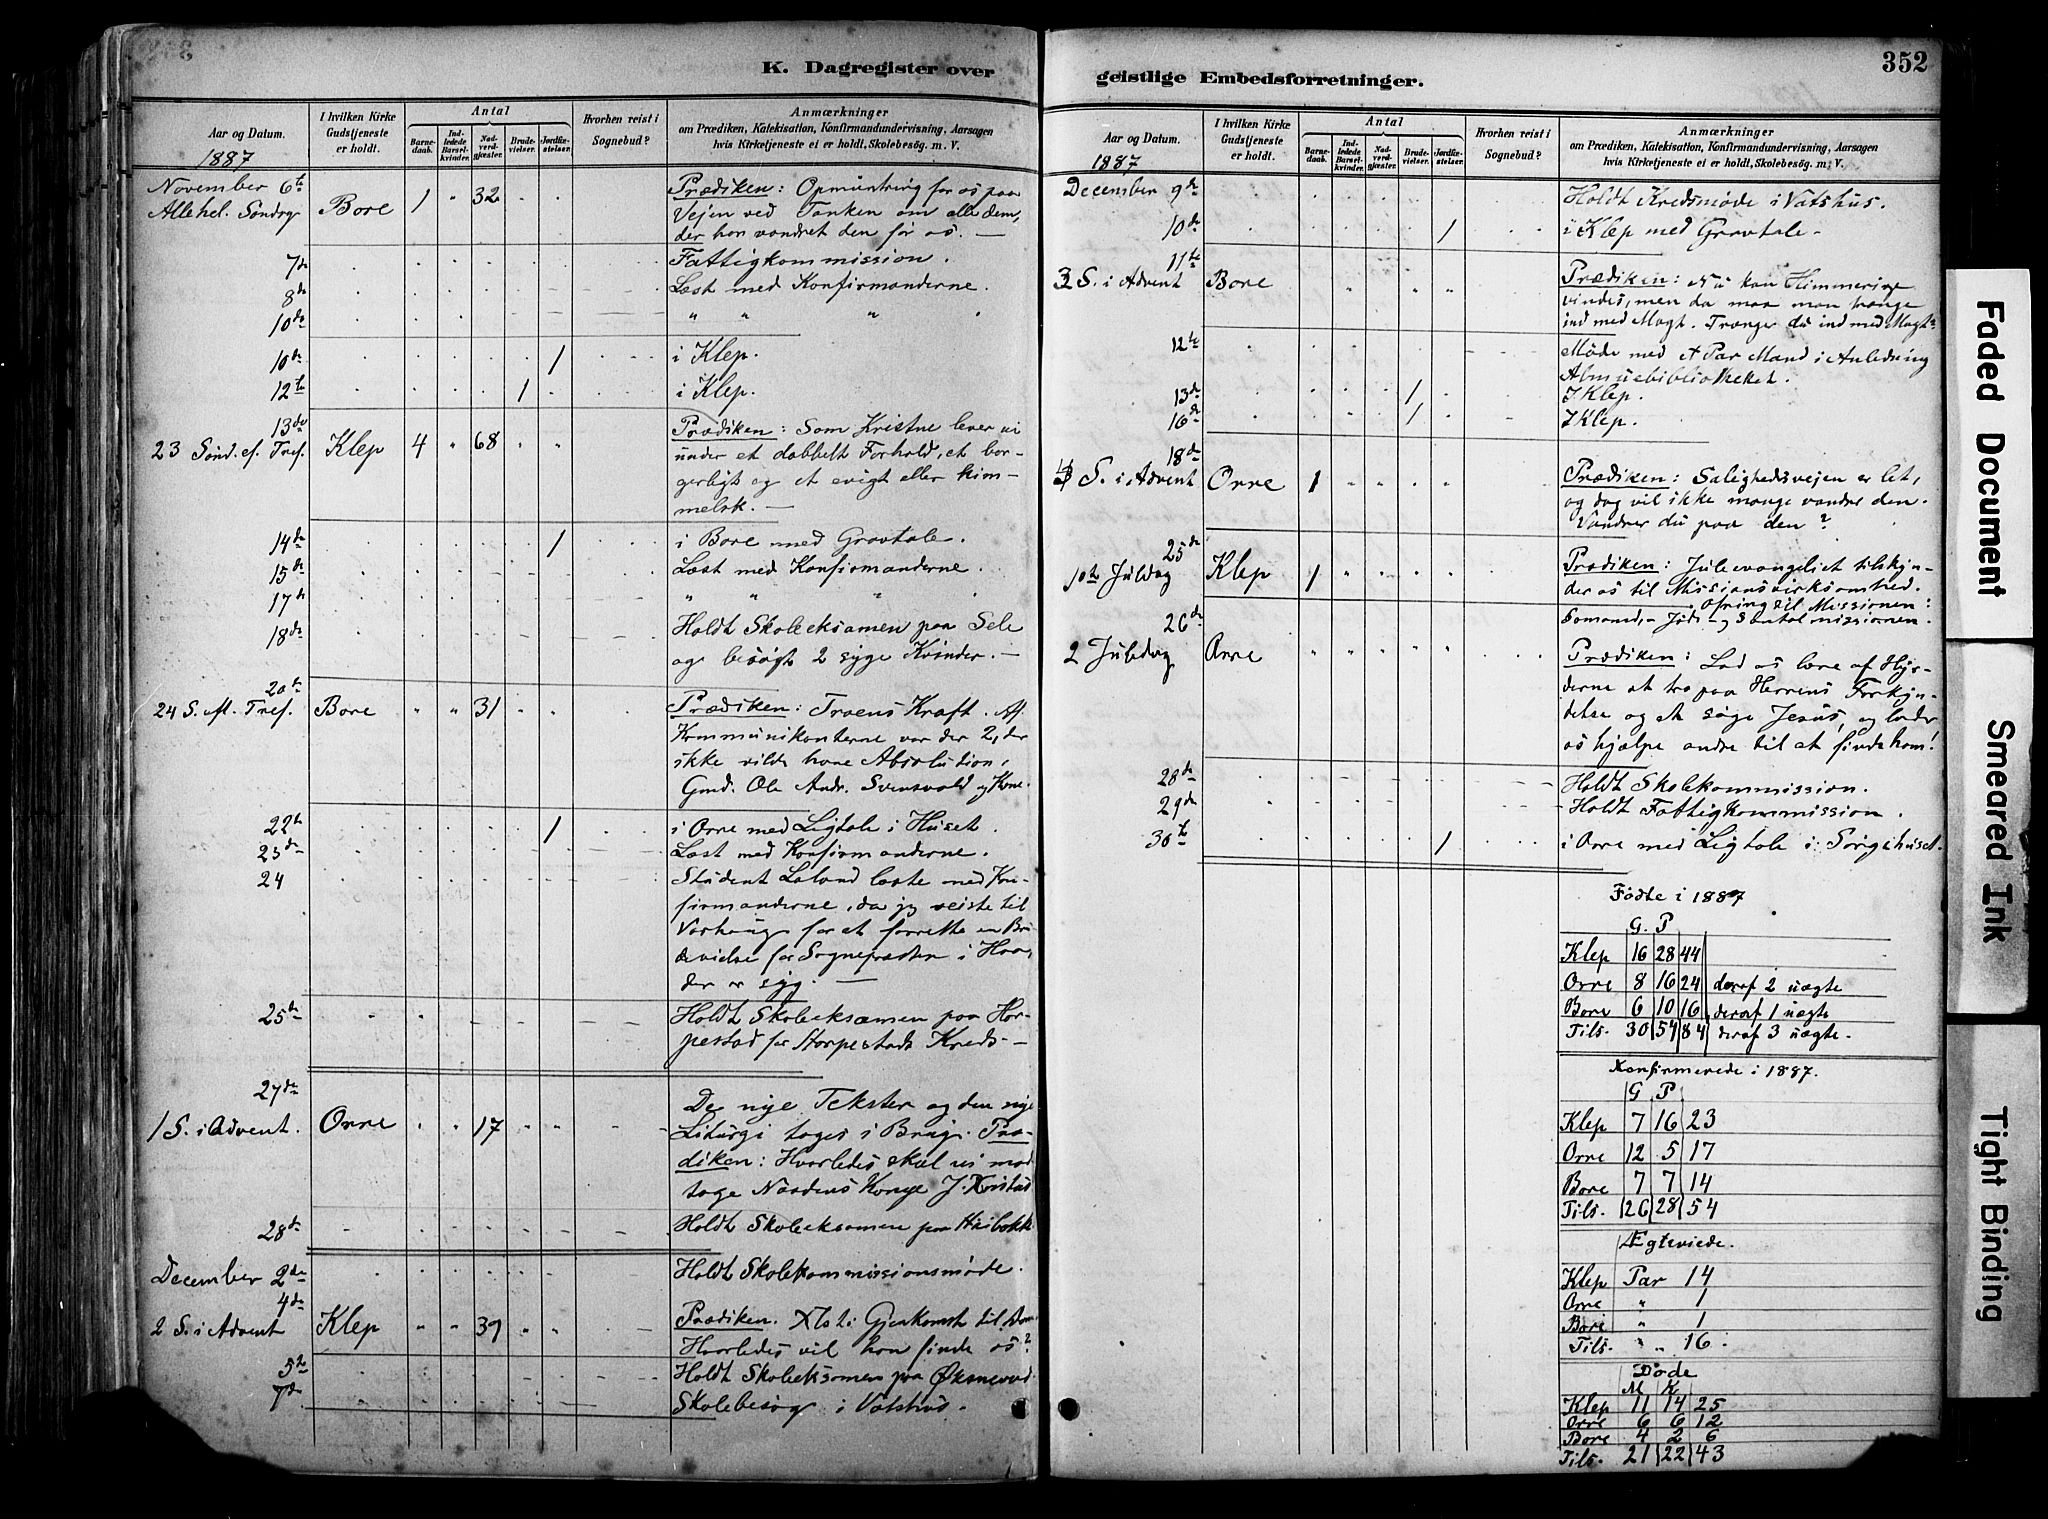 K. Dagregister over
Aar og Datum.
1887
I hvilken Kirke Gudstjeneste er holdt.
Antal
Barnedaab.
Indledede Barselkvinder.
Nadverdgjæster.
Brudevielser.
Jordfæstelser.
Hvorhen reist i Sognebud?
Anmærkninger
om Prædiken, Katekisation, Konfirmandundervisning, Aarsagen
hvis Kirketjeneste ei er holdt, Skolebesøg. m. V.
November 6te
Allehel. Søndag Bore 1 " 32 Prædiken: Opmuntring for os paa
Vejen ved Tanken om alle dem,
der har vandret den før os. —
7de Fattigkommission.
8de Læst med Konfirmanderne.
10de " " "
10de 1 i Klep.
12te 1 i Klep.
13de
23 Sønd. ef. Tref. Klep 4 " 68 " " Prædiken: Som Kristne lever vi
under et dobbelt Forhold, et bor-
gerligt og et evigt eller him-
melsk. —
14de 1 i Bore med Gravtale.
15de Læst med Konfirmanderne.
17de " " "
18de Holdt Skoleeksamen paa Sele
og besøgt 2 syge Kvinder. —
20de
24 S. eft. Tref. Bore " " 31 Prædiken: Troens Kraft. Af
Kommunikanterne var der 2, der
ikke vilde have Absolution,
Gmd. Ole Andr. Svensvold og Kone.
22de 1 i Orre med Ligtale i Huset.
23de Læst med Konfirmanderne.
24 Student Laland læste med Kon-
firmanderne, da jeg reiste til
Varhaug for at forrette en Bru-
devielse for Sognepræsten i Haa,
der er syg. —
25de Holdt Skoleeksamen paa Hor-
pestad for Horpestads Kreds —
27de
1 S. i Advent. Orre " " 17 " " De nye Tekster og den nye
Liturgi tages i Brug. Præ-
diken: Hvorledes skal vi mod-
tage Naadens Konge J. Kristus
28de Holdt Skoleeksamen paa
December 2de Holdt Skolekommissionsmøde.
4de
2 S. i Advent Klep " " 37 " " Prædiken. Xsti Gjenkomst til Dom.
Hvorledes vil han finde os?
5te Holdt Skoleeksamen paa Øksnevad
7de Skolebesøg i Vatshus.
geistlige Embedsforretninger.
352
Aar og Datum.
1887
I hvilken Kirke Gudstjeneste er holdt.
Antal
Barnedaab.
Indledede Barselkvinder.
Nadverdgjæster.
Brudevielser.
Jordfæstelser.
Hvorhen reist i Sognebud?
Anmærkninger
om Prædiken, Katekisation, Konfirmandundervisning, Aarsagen
hvis Kirketjeneste ei er holdt, Skolebesög. m. V.
December 9de Holdt Kredsmøde i Vatshus.
10de 1 i Klep med Gravtale —
11te
3 S. i Advent Bore " " " " Prædiken: Nu kan Himmerige
vindes, men da maa man trænge
ind med Magt. Trænger du ind med Magt?
12te Møde med et Par Mænd i Anledning
Almuebibliotheket.
13de 1 I Klep.
16de 1 I Klep.
18de
4 S. i Advent Orre 1 " " " " Prædiken: Salighedsvejen er let,
og dog vil ikke mange vandre den.
Vandrer du paa den?
25de
1ste Juledag Klep 1 " " " " Prædiken: Juleevangeliet tilskyn-
der os til Missionsvirksomhed.
Ofring til Missionen:
Sømands,- Jøde- og Santalmissionen.
26de
2 Juledag Orre " " " " " Prædiken: Lad os lære af Hyr-
derne at tro paa Herrens Forkyn-
delse og at søge Jesus, og lader
os hjælpe andre til at finde ham!
28de Holdt Skolekommission.
29de Holdt Fattigkommission.
30te 1 i Orre med Ligtale i Sørgehuset.
Fødte i 1887
G. P
Klep 16 28 44
Orre 8 16 24 deraf 2 uægte
Bore 6 10 16 deraf 1 uægte
Tils. 30 54 84 deraf 3 uægte.
Konfirmerede i 1887.
G P
Klep 7 16 23
Orre 12 5 17
Bore 7 7 14
Tils. 26 28 54
Ægteviede.
Klep Par 14
Orre " 1
Bore " 1
Tils. " " 16
Døde
M K
Klep 11 14 25
Orre 6 6 12
Bore 4 2 6
Tils. 21 22 43
Faded Document
Smeared Ink
Tight Binding